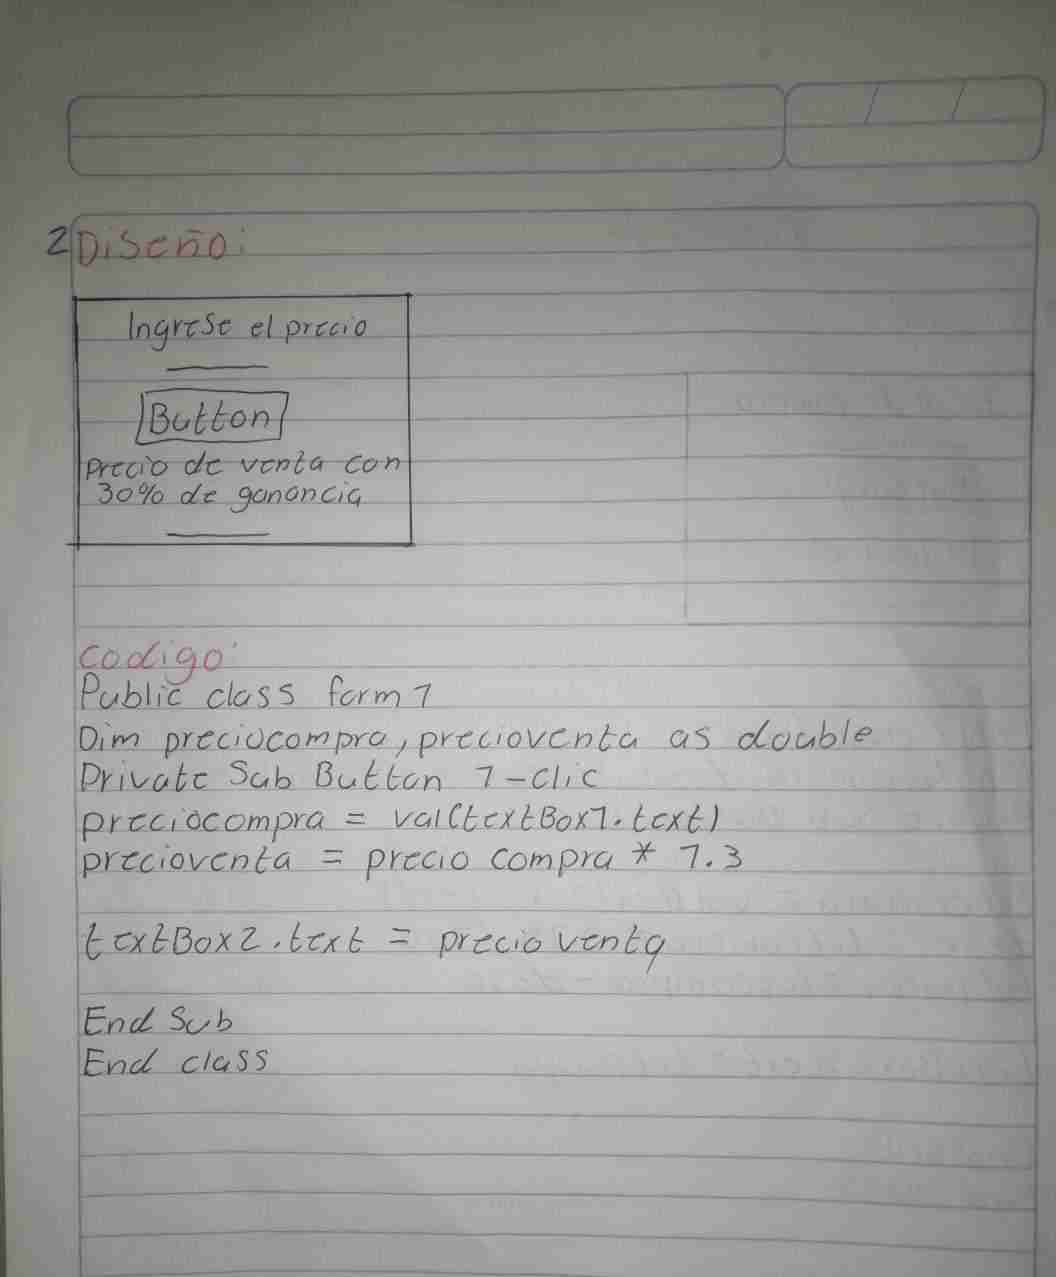 2 Diseño:
Ingrese el precio
Button
precio de venta con
30% de ganancia
codigo:
Public class form 1
Dim preciocompra, precioventa as double
Private Sub Button 1-clic
preciocompra = val(textBox1.text)
precioventa = precio compra * 1.3
textBox2.text = precio venta
End Sub
End class